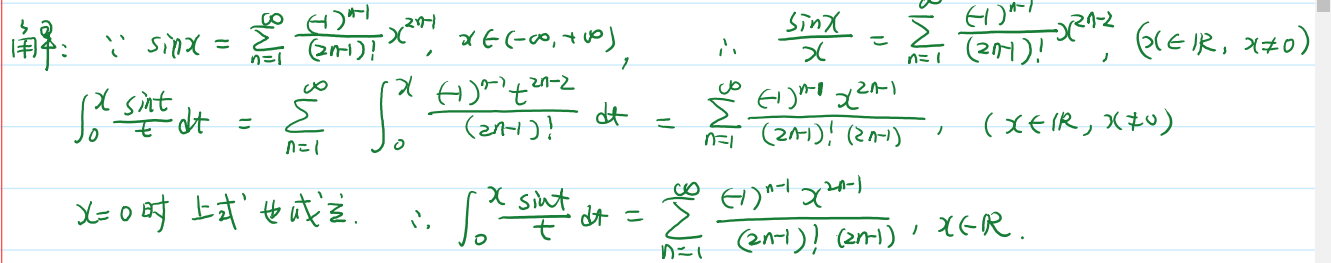 解: ∵ sinx = ∑_{n=1}^{∞} \frac{(-1)^{n-1}}{(2n-1)!} x^{2n-1}, x∈(-∞,+∞), ∴ \frac{sinx}{x} = ∑_{n=1}^{∞} \frac{(-1)^{n-1}}{(2n-1)!} x^{2n-2}, (x∈ℝ, x≠0)
∫_0^x \frac{sint}{t} dt = ∑_{n=1}^{∞} ∫_0^x \frac{(-1)^{n-1} t^{2n-2}}{(2n-1)!} dt = ∑_{n=1}^{∞} \frac{(-1)^{n-1} x^{2n-1}}{(2n-1)! (2n-1)}, (x∈ℝ, x≠0)
x=0时 上式也成立. ∴ ∫_0^x \frac{sint}{t} dt = ∑_{n=1}^{∞} \frac{(-1)^{n-1} x^{2n-1}}{(2n-1)! (2n-1)}, x∈ℝ.